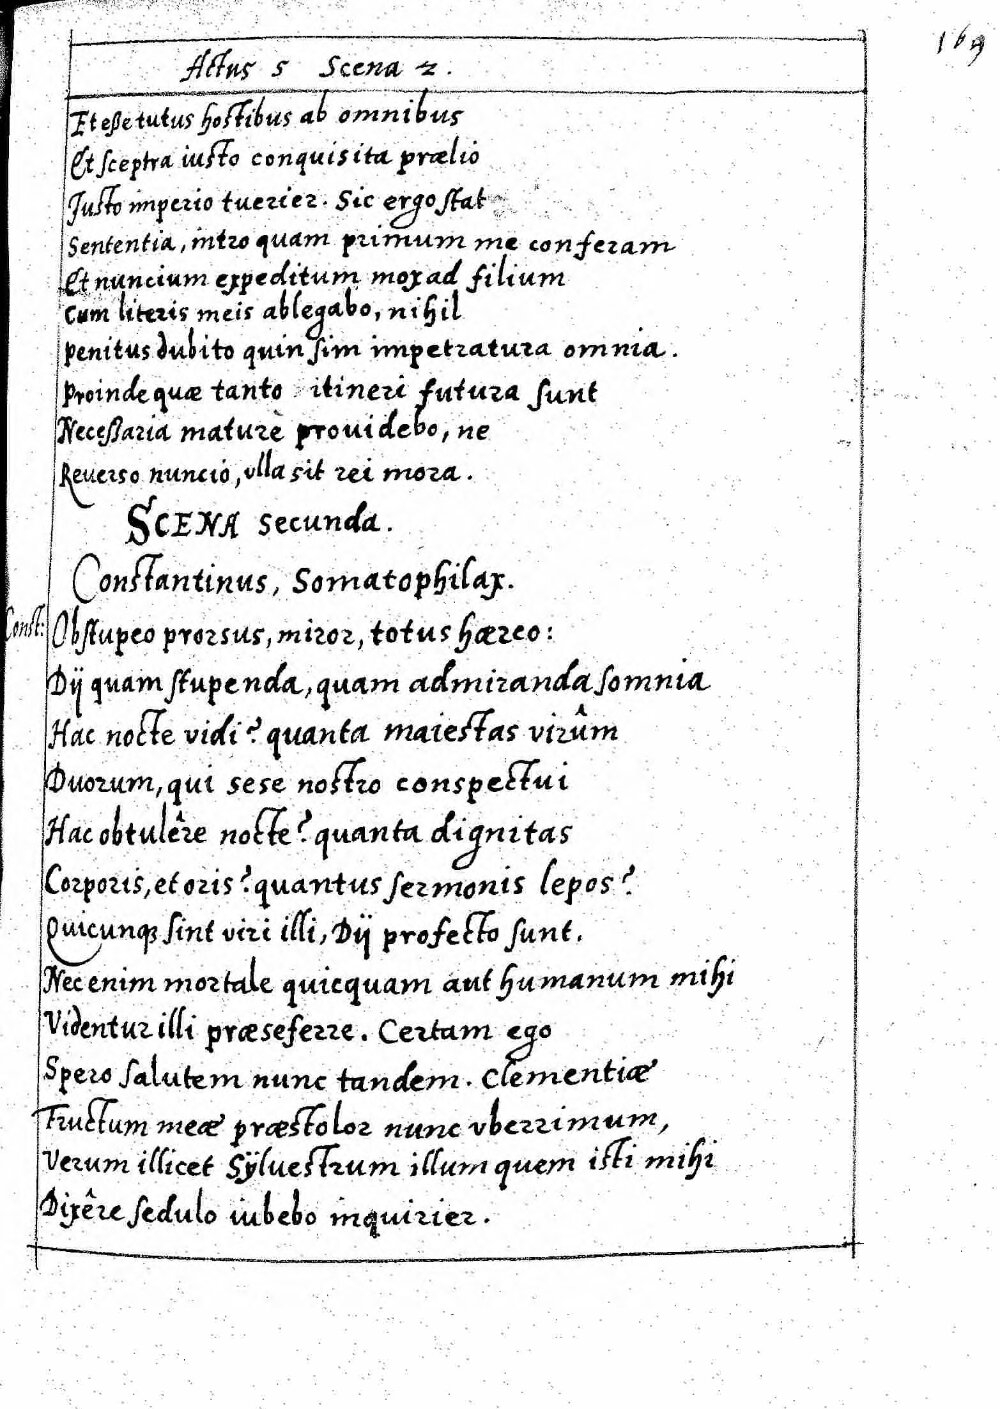 169
Actus 5 Scena 2.
Et esse tutus hostibus ab omnibus
Et sceptra iusto conquisita prælio
Justo imperio tuerier. Sic ergo stat
Sententia, intro quam primum me conferam
Et nuncium expeditum mox ad filium
Cum literis meis ablegabo, nihil
penitus dubito quin sim impetratura omnia.
Proinde quæ tanto itineri futura sunt
Necessaria maturè prouidebo, ne
Reuerso nuncio, vlla sit rei mora.
SCENA Secunda.
Constantinus, Somatophilax.
Const: Obstupeo prorsus, miror, totus hæreo:
Dij quam stupenda, quam admiranda somnia
Hac nocte vidi? quanta maiestas virûm
Duorum, qui sese nostro conspectui
Hac obtulêre nocte? quanta dignitas
Corporis, et oris? quantus sermonis lepos?
Quicunq; sint viri illi, Dij profecto sunt.
Nec enim mortale quicquam aut humanum mihi
Videntur illi præseferre. Certam ego
Spero salutem nunc tandem. Clementiæ
Fructum meæ præstolor nunc vberrimum,
Verum illicet Sÿluestrum illum quem isti mihi
Dixêre sedulo iubebo inquirier.